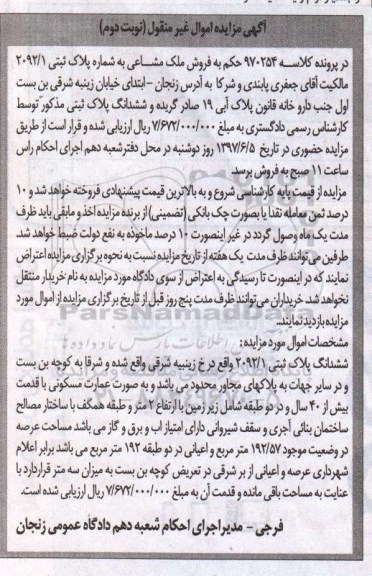 آگهی مزایده اموال غیر منقول (نوبت دوم)
در پرونده کلاسه ۹۷۰۲۵۴ حکم به فروش ملک مشاعی به شماره پلاک ثبتی ۲۰۹۲/۱
مالکیت آقای جعفری پابندی و شرکا به آدرس زنجان -ابتدای خیابان زینبیه شرقی بن بست
اول جنب دارو خانه قانون پلاک آبی ۱۹ صادر گریده و ششدانگ پلاک ثبتی مذکور توسط
کارشناس رسمی دادگستری به مبلغ ۷/۶۷۲/۰۰۰/۰۰۰ ریال ارزیابی شده و قرار است از طریق
مزایده حضوری در تاریخ ۱۳۹۷/۶/۵ روز دوشنبه در محل دفترشعبه دهم اجرای احکام راس
ساعت ۱۱ صبح به فروش برسد.
مزایده از قیمت پایه کارشناسی شروع و به بالاترین قیمت پیشنهادی فروخته خواهد شد و ۱۰
درصد ثمن معامله نقدا یا بصورت چک بانکی (تضمینی) از برنده مزایده اخذ و مابقی باید ظرف
مدت یک ماه وصول گردد در غیر اینصورت ۱۰ درصد ماخوذه به نفع دولت ضبط خواهد شد.
طرفین می توانند ظرف مدت یک هفته از تاریخ مزایده نسبت به نحوه برگزاری مزایده اعتراض
نمایند که در اینصورت تا رسیدگی به اعتراض از سوی دادگاه مورد مزایده به نام خریدار منتقل
نخواهد شد. خریداران می توانند ظرف مدت پنج روز قبل از تاریخ برگزاری مزایده از اموال مورد
مزایده بازدید نمایند..
مشخصات اموال مورد مزایده:
ششدانگ پلاک ثبتی ۲۰۹۲/۱ واقع در خ زینبیه شرقی واقع شده و شرقا به کوچه بن بست
و در سایر جهات به پلاکهای مجاور محدود می باشد و به صورت عمارت مسکونی با قدمت
بیش از ۴۰ سال و در دو طبقه شامل زیر زمین با ارتفاع ۲ متر و طبقه همکف با ساختار مصالح
ساختمان بنائی آجری و سقف شیروانی دارای امتیاز اب و برق و گاز می باشد مساحت عرصه
در وضعیت موجود ۱۹۲/۵۷ متر مربع و اعیانی در دو طبقه ۱۹۲ متر مربع می باشد برابر اعلام
شهرداری عرصه و اعیانی از بر شرقی در تعریض کوچه بن بست به میزان سه متر قراردارد با
عنایت به مساحت باقی مانده و قدمت آن به مبلغ ۷/۶۷۲/۰۰۰/۰۰۰ ریال ارزیابی شده است.
فرجی - مدیراجرای احکام شعبه دهم دادگاه عمومی زنجان